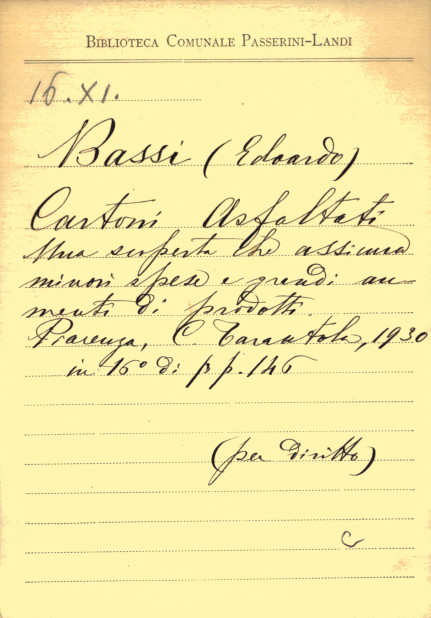 BIBLIOTECA COMUNALE PASSERINI-LANDI
16.XI.
Bassi (Edoardo)
Cartoni Asfaltati
Una scoperta che assicura
minori spese e grandi au-
menti di prodotti.
Piacenza, C. Tarantola, 1930
in 16° di pp. 146
(per diritto)
C